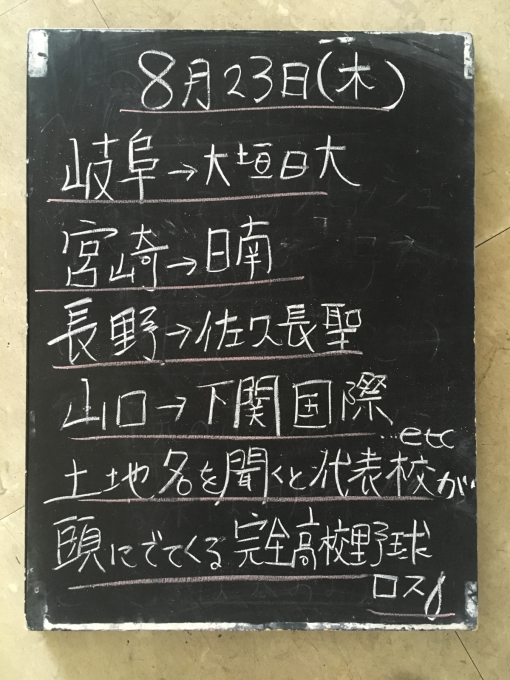 8月23日(木)
岐阜→大垣日大
宮崎→日南
長野→佐久長聖
山口→下関国際
...etc
土地名を聞くと代表校が
頭にでてくる完全高校野球
ロス